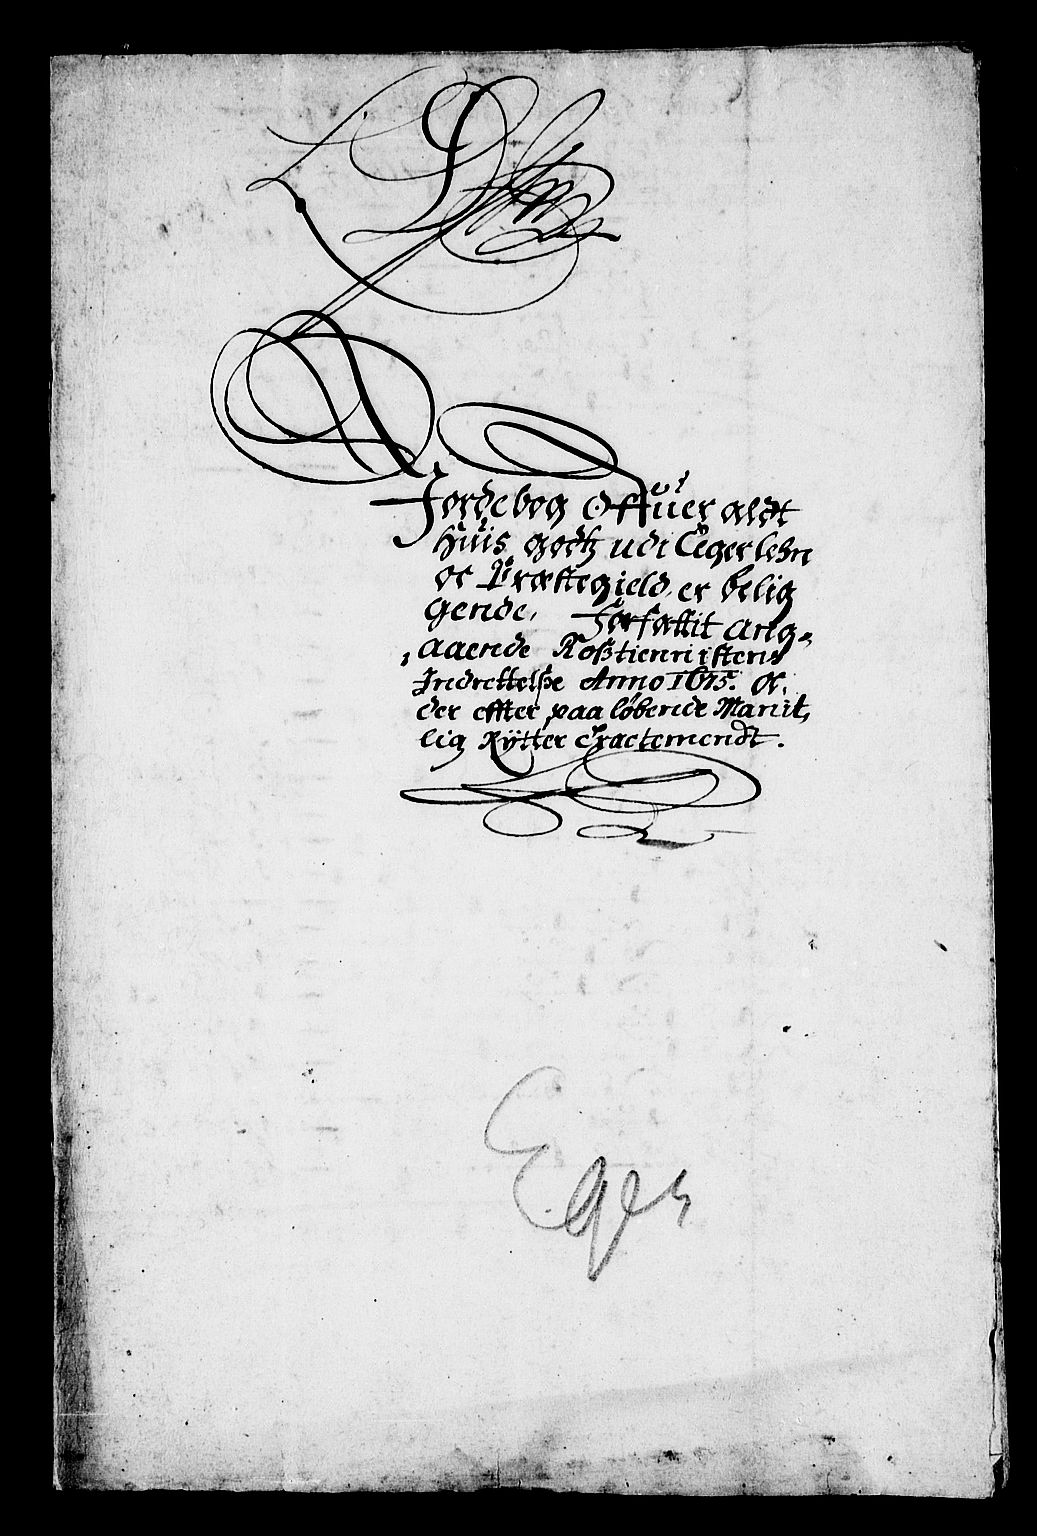 Jordebog Offuer aldt
Huus godtz udi Eger lehn
oc Præstegield er belig
gende, Forfattit ang„
„aaende Roßtiennistens
Indrettelße Anno 1675. Oc
der effter paa løbende Manit„
lig Rÿtter Tractemendt.
Eger